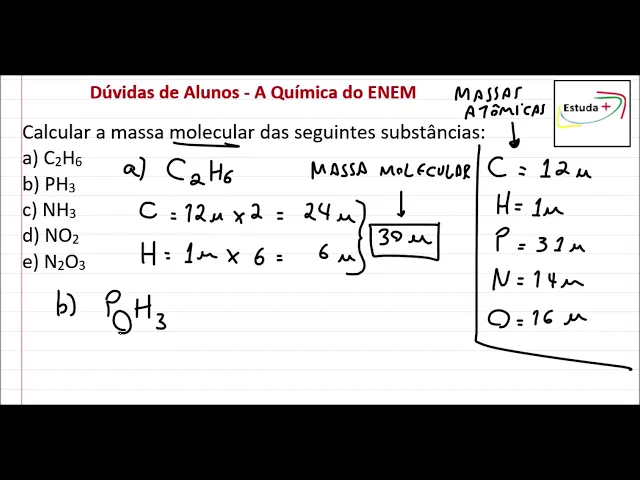 Dúvidas de Alunos - A Química do ENEM
MASSAS ATÔMICAS
Estuda +
Calcular a massa molecular das seguintes substâncias:
a) C2H6
b) PH3
c) NH3
d) NO2
e) N2O3
a) C2H6
MASSA MOLECULAR
C = 12u x 2 = 24u
H = 1u x 6 = 6u
30u
b) PH3
C = 12u
H = 1u
P = 31u
N = 14u
O = 16u